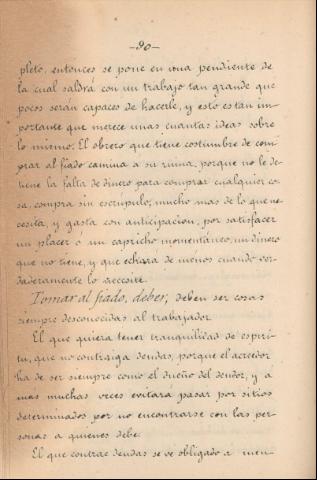 -90-
pleto, entonces se pone en una pendiente de
la cual saldrá con un trabajo tan grande que
pocos serán capaces de hacerle, y esto es tan im-
portante que merece unas cuantas ideas sobre
lo mismo. El obrero que tiene costumbre de com-
prar al fiado camina a su ruina, porque no le de-
tiene la falta de dinero para comprar cualquier co-
sa, compra sin escrupulo, mucho mas de lo que ne-
cesita, y gasta con anticipacion, por satisfacer
un placer o un capricho momentáneo, un dinero
que no tiene, y que echara de menos cuando ver-
daderamente lo necesite.
Tomar al fiado, deber, deben ser cosas
siempre desconocidas al trabajador.
El que quiera tener tranquilidad de espiri-
tu, que no contraiga deudas, porque el acreedor
ha de ser siempre como el dueño del deudor, y a
mas muchas veces evitará pasar por sitios
determinados por no encontrarse con las per-
sonas a quienes debe.
El que contrae deudas se ve obligado a men-